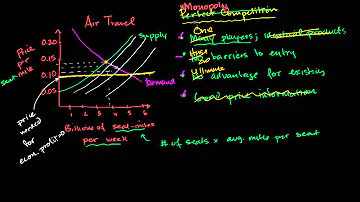 Air Travel
Price
per
seat-
mile
0.20
0.15
0.10
0.05
Supply
Demand
1 2 3 4 5 6
Billions of seat-miles
per week
# of seats x avg. miles per seat
price
needed
for
econ. profit=0
Monopoly
Perfect Competition
One
Many players; identical products
Huge
No barriers to entry
Ultimate
No advantage for existing
Good price information